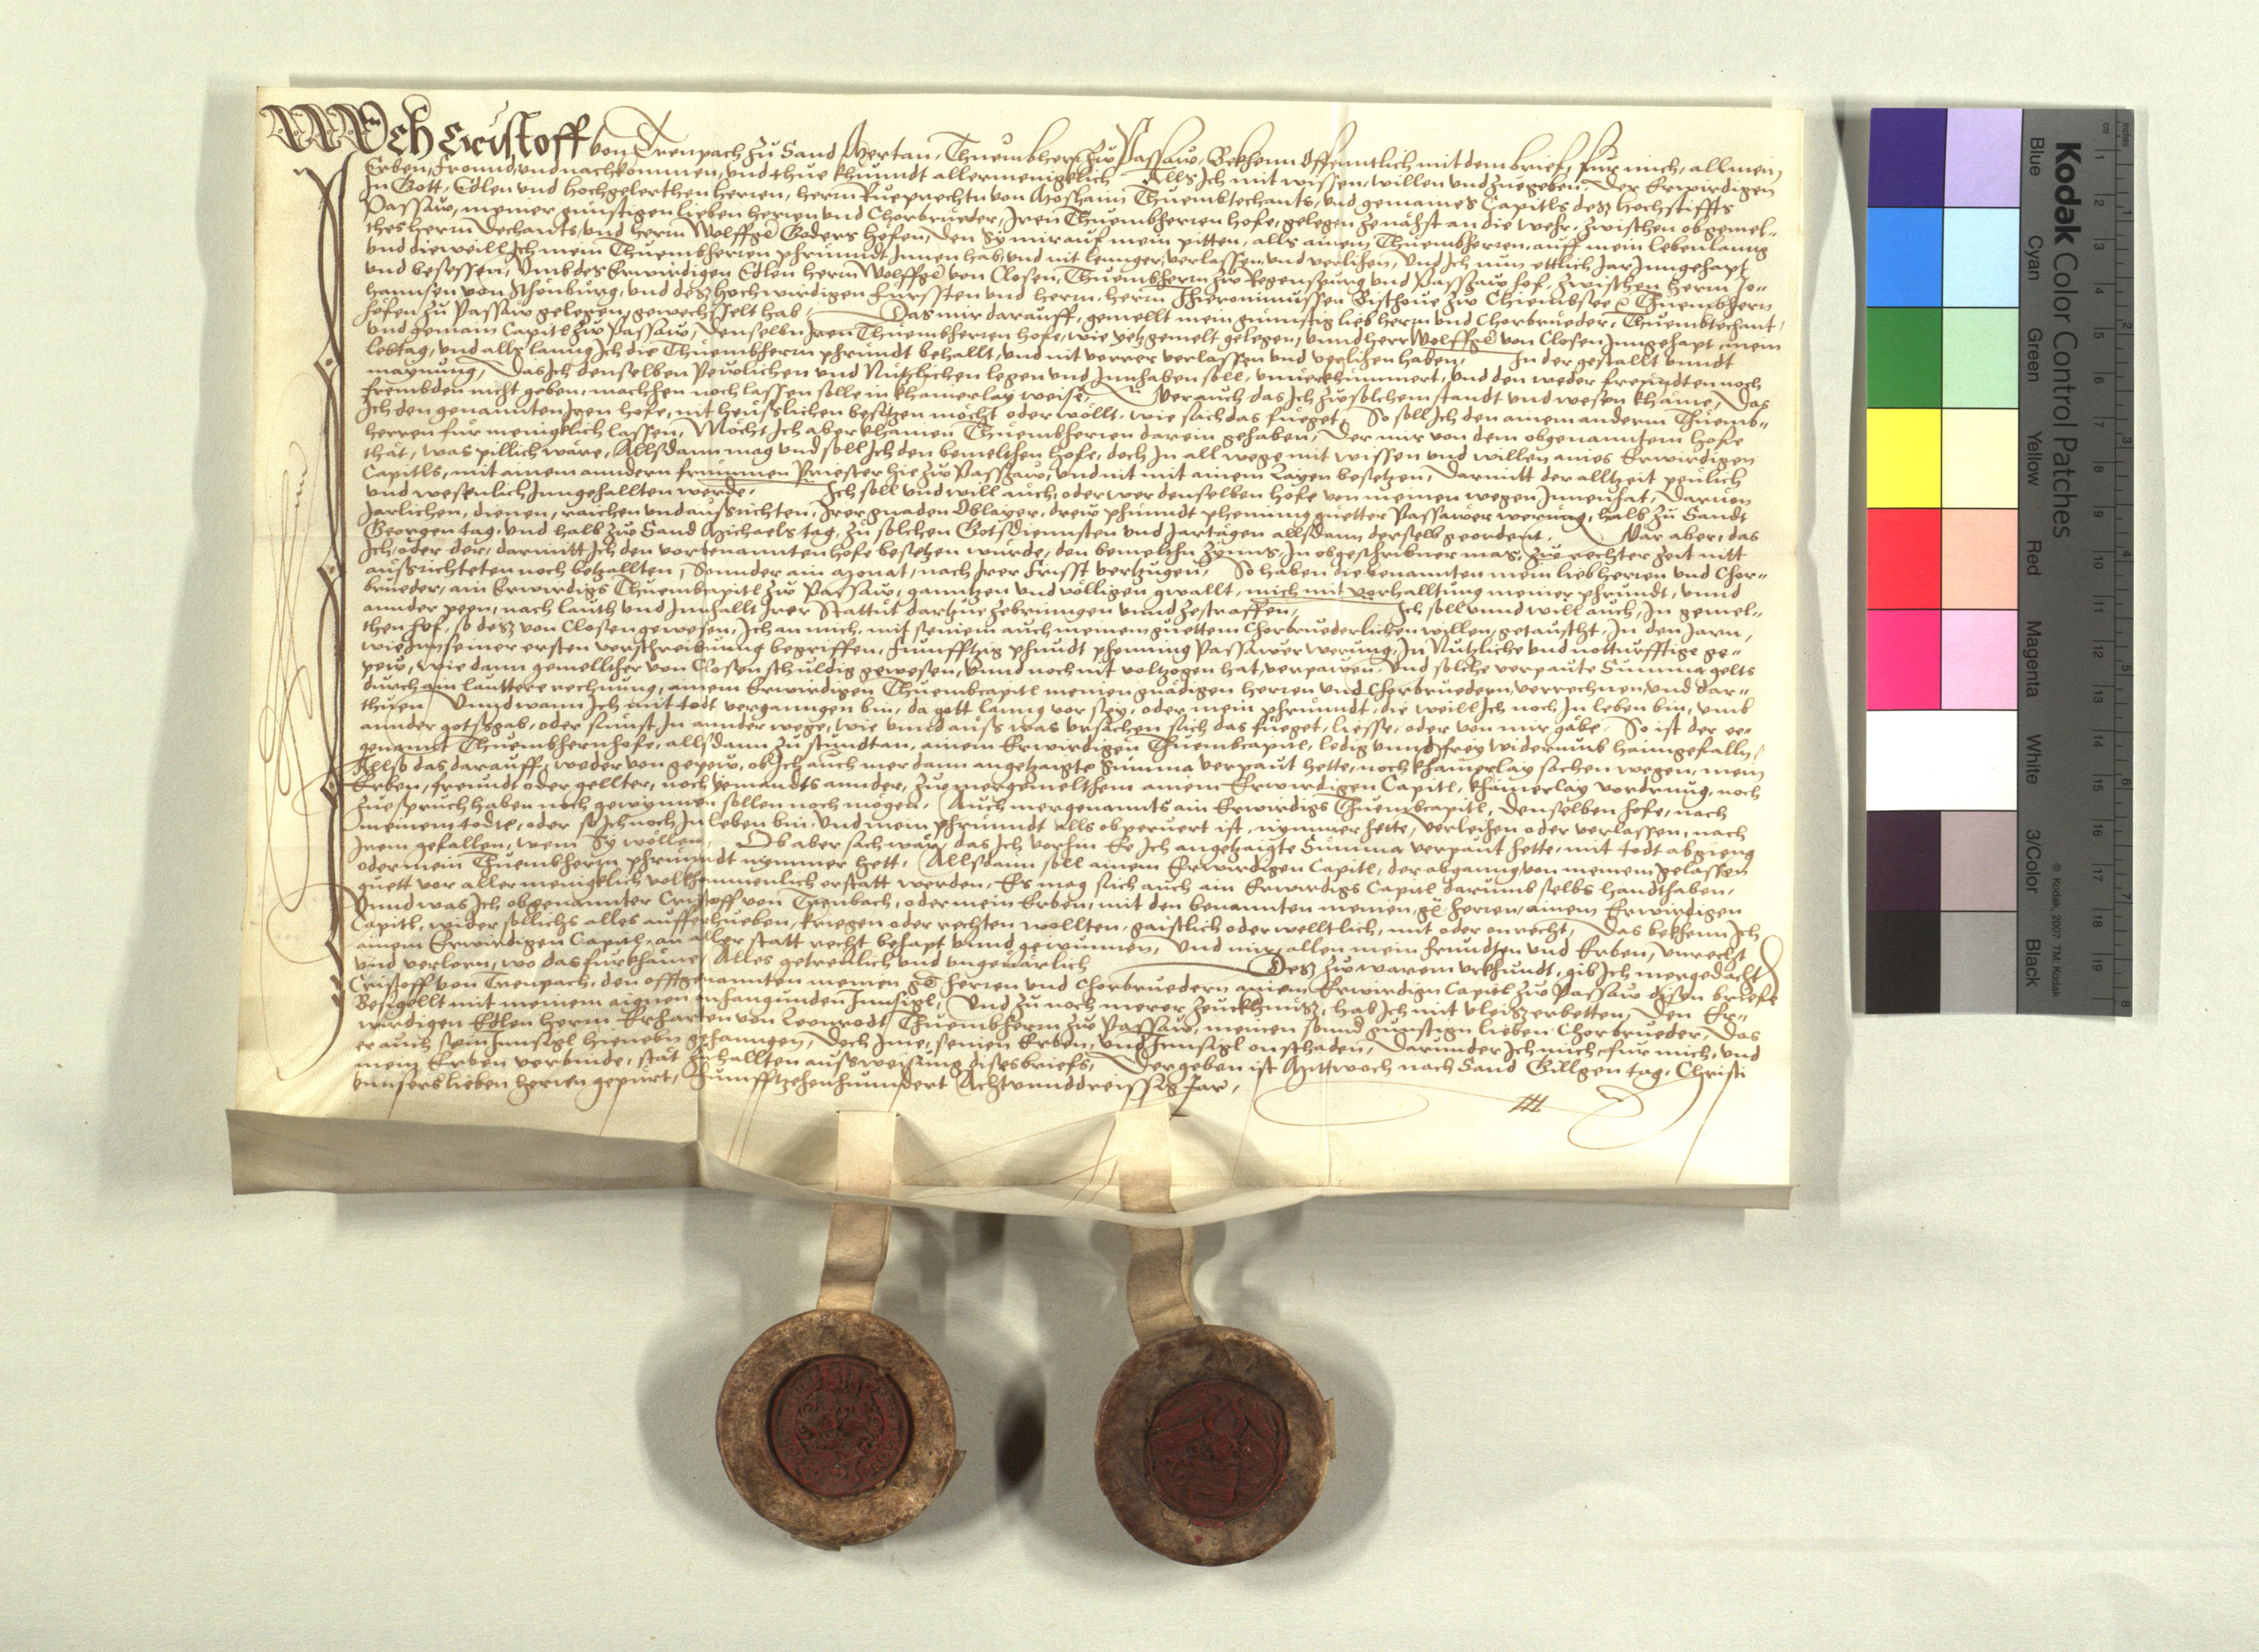 Ich Cristoff von Trenpach zu Sand Mertan, Thuembherr zw Passaw, Bekhenn offenntlich mit dem brief, fur mich, all mein,
Erben, Freund, und nachkommen, und thue khunndt allermenigclich Alls Ich mit wissen, willen und zuegeben, Der Erwirdigen
In Gott, Edlen und hochgelerthen herren, herrn Rueprechtn von Moshaim Thuembtechants, und gemaines Capitls desz hochstiffts
Passaw, meiner gunstigen lieben herren und Chorbrueder, Iren Thuembherren hofe, gelegen zenähst an die wehr, zwischen obgemel-
thes herrn Dechants, und herrn Wolffgē Goders höfen, den Sy mir auf mein pitten, alls ainem Thuembherren, auff mein lebenlanng
und dieweill Ich mein Thuembherren phrundt Innen hab, und nit lennger, verlassen und verlihen, Und Ich nun ettlich Jar Inngehapt
und besessen, Umb des Erwirdigen Edlen herrn Wolffgē von Closen, Thuembherrn zw Regenspurg und Passaw hof, zwischen herrn Jo-
hannsen von Schönburg, und desz hochwirdigen Fürssten und herrn, herrn Hieronimussen Bischove zw Chiembsee ꝛc Thuembherrn
höfen zu Passaw gelegen, gewechsselt hab, Das mir darauff, gemellt mein günnstig lieb herrn und Chorbrueder, Thuembtechant,
und gemain Capitl zw Passaw, denselbn Iren Thuembherren hofe, wie yetzgemelt gelegen, unnd herr Wolffgē von Closen Inngehapt, mein
lebtag, und alls lanng Ich die Thuembherrn phrundt behallt, und nit verrer verlassen und verlihen haben, In der gestallt unndt
maynung, Das Ich denselben Pewlichen und Nutzlichen legen und Innhaben soll, unverkhummert, und den weder freundten noch
frembden nicht geben, machhen noch lassen solle in khamerlay weise, Wer auch das Ich zw solchem standt und wesen khäme, Das
Ich den genannten Iren hofe, nit heuslichen besitzen möcht oder wöllt, wie sich das fueget, So soll Ich den ainem anderm Thuemb-
herren für menigklich lassen, Möcht Ich aber khainen Thuembherren darein gehaben, Der mir von dem obgenanntem hofe
thät, was pillich wäre, Allsdann mag und soll Ich den bemelthen hofe, doch In all wege mit wissen und willen aines Erwirdigen
Capitls, mit ainem anndern frümmen Priester hie zw Passaw, Und nit mit ainem Layen besetzen, Darmitt der alltzeit peulich
und wesenlich Inngehallten werde, Ich soll und will auch, oder wer denselben hofe von meinen wegen Innenhat, Darvon
Jarlichen, dienen, raichen und ausrichten, Irer gnaden Oblayer, drew phundt phenning guetter Passawer werung, halb zu Sandt
Georgen tag, und halb zw Sand Michaels tag, zu solchen Gotsdiennsten und Jartägen allsdann derselb geordent, Wär aber, das
Ich, oder der, darmitt Ich den vorbenannten hofe besetzen wurde, den bemelthn zynns, In obgeschribner mas, zw rechter zeit nitt
ausrichteten noch betzallten, Sonnder ain Monat, nach Irer Frisst vertzugen, So haben die benannten mein lieb herren und Chor-
brueder, ain Erwirdigs Thuembcapitl zw Passaw, ganntzen und völligen gwallt, mich mit vorhalltung meiner phrundt, unnd
annder peen, nach lauth und Innhallt Irer Stattut dartzue zebrinngen unnd zestraffen, Ich soll unnd will auch, In gemel-
then hof, so desz von Closen gewesen, Ich an mich, mit seinem auch meinem guettem Chorbruederlichen willen, getauscht, In den Jarn,
wie Inn seiner ersten verschreibung begriffen, Funfftzig phundt phenning Passawer werung, In Nutzliche und notturfftige ge-
pew, wie dann gemellther von Closen schuldig gewesen, Unnd noch nit voltzogen hat, verpawen, Und solche verpaute Summa gelts
durch ain lauttere rechnung, ainem Erwirdigen Thuembcapitl meinen gnädigen herren und Chorbruedern, verrechnen, und dar-
thuen, Unnd wann Ich mit todt verganngen bin, da gott lanng vor sey, oder mein phrunndt, die weill Ich noch In leben bin, umb
annder gotsgab, oder sunst In annder wege, wie unnd aus was ursachen sich das fueget, liesse, oder von mir gäbe, So ist der ee-
genannt Thuembherrnhofe, allsdann zu stundtan, ainem Erwirdigen Thuembcapitl, ledig unnd frey widerumb haimgefalln,
Allso das darauff, weder von gepew, ob Ich auch mer dann angetzaigte Summa verpaut hette, noch khainerlay sachen wegen, mein
Erben, freundt oder gellter, noch yemandts annder, zw mergemelthem ainem Erwirdigen Capitl, khainerlay vordrung, noch
zuespruch haben noch gewynnen sollen noch mögen, Auch mergenannts ain Erwirdigs Thuembcapitl, Denselben hofe, nach
meinem todte, oder so Ich noch In leben bin, Und mein phrunndt alls obperuert ist, nymmer hette, verleihen oder verlassen, nach
Irem gefallen, wem Sy wöllen, Ob aber sach wär, das Ich vorhin Ee Ich angetzaigte Summa verpaut hette, mit todt abgieng
oder mein Thuembherrn phrunndt nymmer hett, Allsdann soll ainem Erwirdigen Capitl, der abganng, von meinem gelassen
guett vor allermenigklich volkhommenlich erstatt werden, Es mag sich auch ain Erwirdigs Capitl darumb selbs handthaben,
Unnd was Ich obgenannter Cristoff von Trenbach, oder mein Erben, mit den benannten meinen gē herren, ainem Erwirdigen
Capitl, wider sollichs alles aufferhueben, kriegen oder rechten wollten, gaistlich oder welltlich, mit oder on recht, Das bekhenn Ich
ainem Erwirdigen Capitl, an aller statt recht behapt unnd gewunnen, Und mir, allen mein freundten und Erben, Unrecht
und verlorn, wo das furkhäme, Alles getreulich und ungevärlich Desz zw warem urkhundt, gib Ich mergedacht
Cristoff von Trenpach, den offtgenannten meinen gē herren und Chorbruedern ainem Erwirdign Capitl zw Passaw disen briefe
Besigellt mit meinem aignen anhangunden Innsigl, Und zu noch merer zeuckhnusz, hab Ich mit vleisz erbetten, Den Er-
wirdigen Edlen herrn Erharten von Leonrodt Thuembherrn zw Passaw, meinen sonnd gunstign lieben Chorbrueder, Das
er auch sein Innsigl hieneben gehanngen, Doch Ime, seinen Erben, und Innsigl on schaden, Darunder Ich mich, fur mich, und
mein Erben verbinde, stät zu hallten ausweisung dises briefs, Der geben ist Mittwoch nach Sand Gilgen tag, Christi
unnsers lieben herren gepurt, Funfftzehenhunndert Achtunnddreissig Jar,
Kodak Color Control Patches
Blue Cyan Green Yellow Red Magenta White 3/Color Black
© Kodak, 2007 TM: Kodak
inches 1 2 3 4 5 6 7 8
cm 1 2 3 4 5 6 7 8 9 10 11 12 13 14 15 16 17 18 19